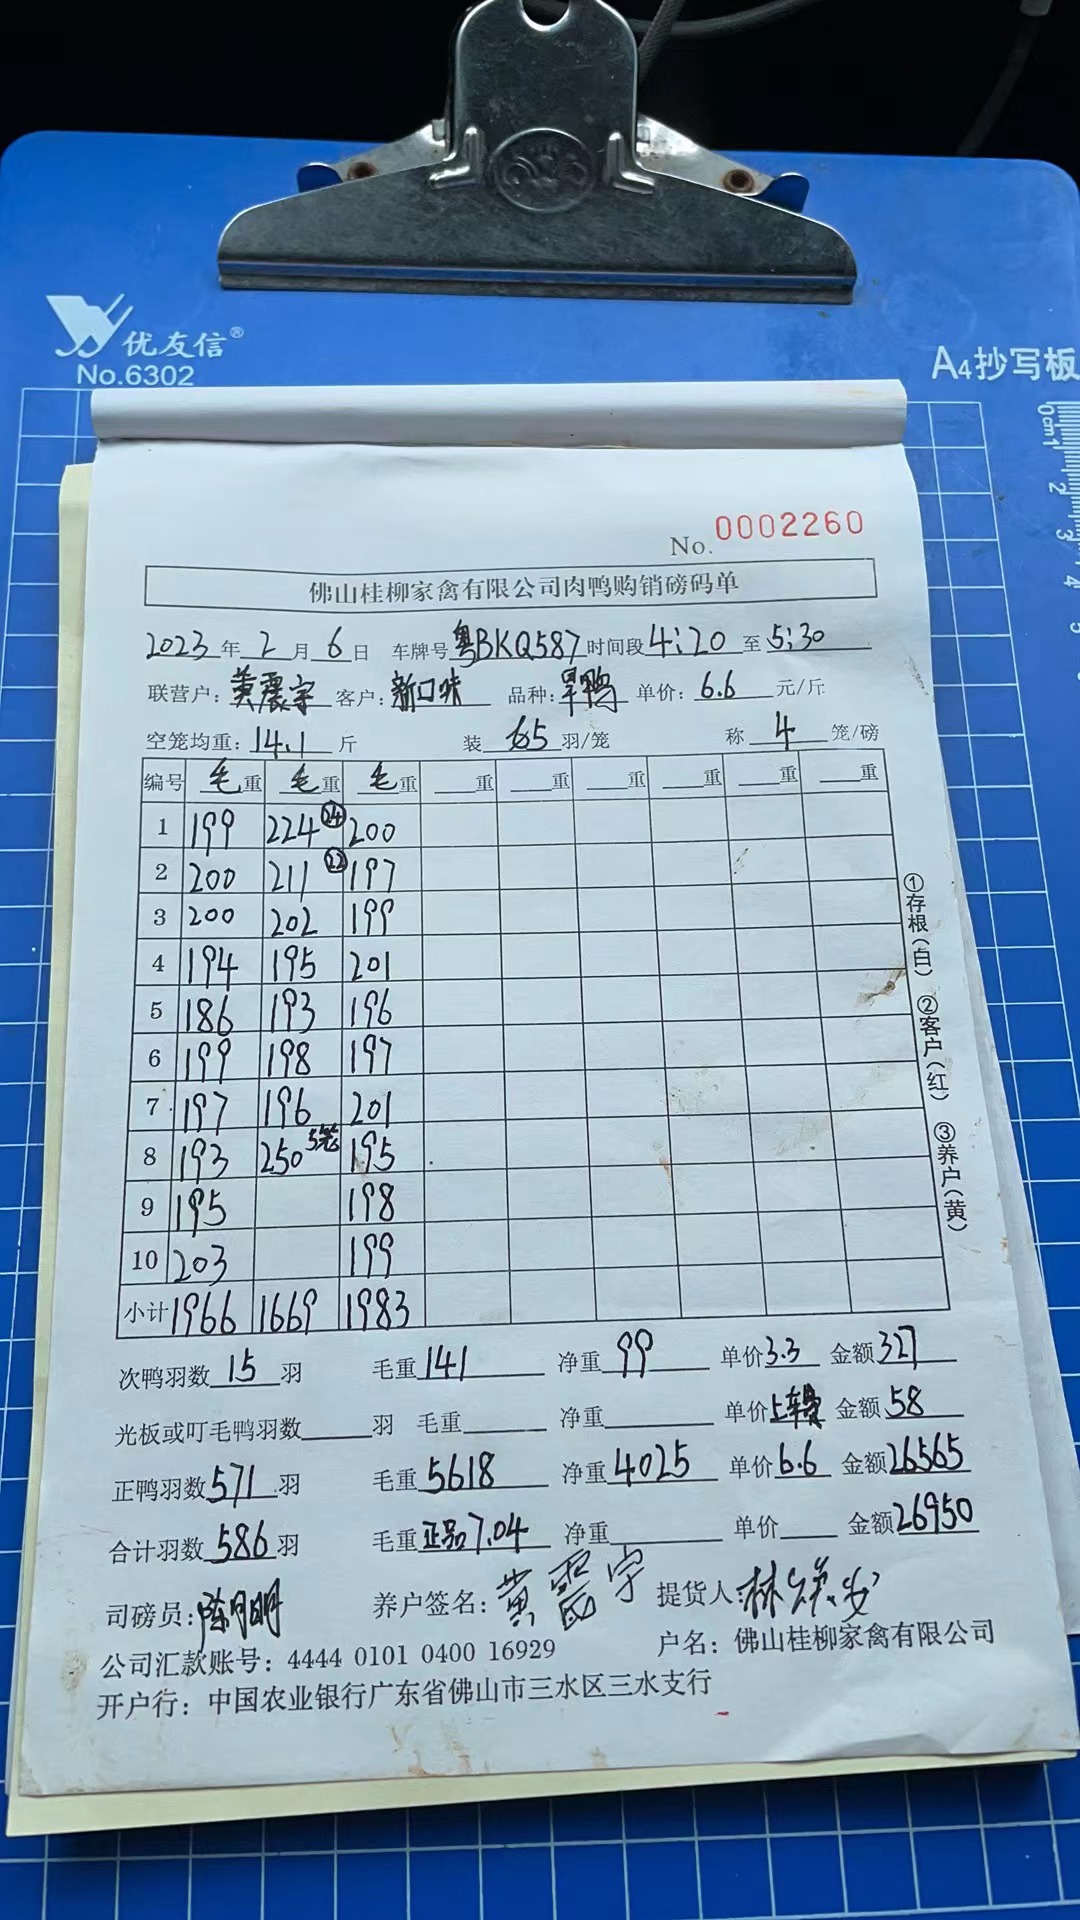 优友信®
No.6302
A4抄写板
0cm1
2
3
4
5
No. 0002260
佛山桂柳家禽有限公司肉鸭购销磅码单
2023年2月6日 车牌号粤BKQ587时间段4:20至5:30
联营户:黄震宇客户:新口味 品种:旱鸭 单价:6.6元/斤
空笼均重:14.1斤 装 65羽/笼 称 4 笼/磅
编号 毛重 毛重 毛重 重 重 重 重 重 重
1 199 224 24 200
2 200 211 22 197
3 200 202 199
4 194 195 201
5 186 193 196
6 199 198 197
7 197 196 201
8 193 250 5笼 195
9 195 198
10 203 199
小计 1966 1669 1983
次鸭羽数15羽 毛重141 净重99 单价3.3 金额327
光板或叮毛鸭羽数 羽 毛重 净重 单价上车费 金额58
正鸭羽数571羽 毛重5618 净重4025 单价6.6 金额26565
合计羽数586羽 毛重正品7.04 净重 单价 金额26950
司磅员:陈月明 养户签名:黄震宇 提货人:林
公司汇款账号:4444 0101 0400 16929 户名:佛山桂柳家禽有限公司
开户行:中国农业银行广东省佛山市三水区三水支行
①存根(白) ②客户(红) ③养户(黄)